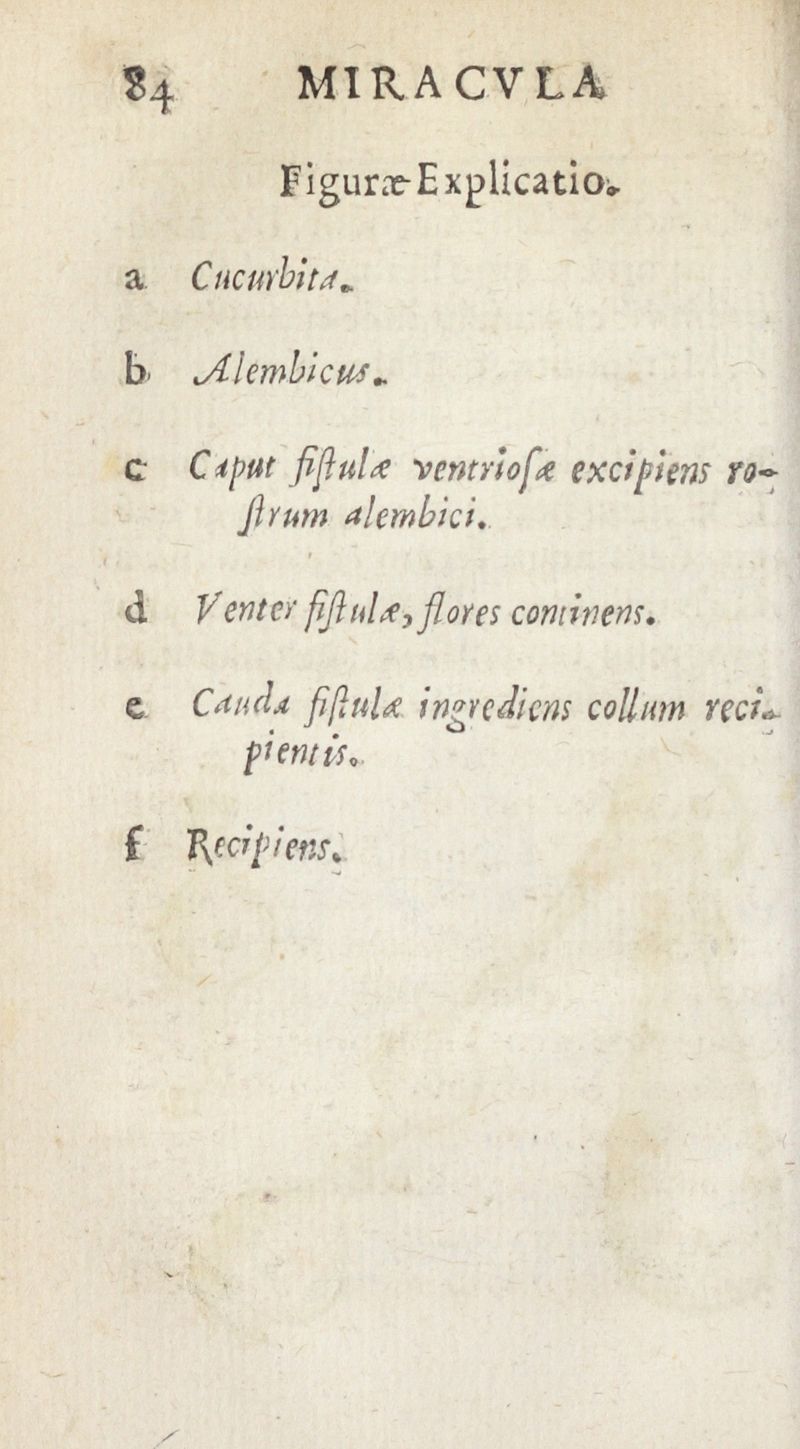 84 MIRACVLA
Figuræ Explicatio.
a Cucurbita.
b Alembicus.
c Caput fiſtulæ ventrioſæ excipiens ro-
ſtrum alembici.
d Venter fiſtulæ, flores continens.
e Cauda fiſtulæ ingrediens collum reci-
pientis.
f Recipiens.